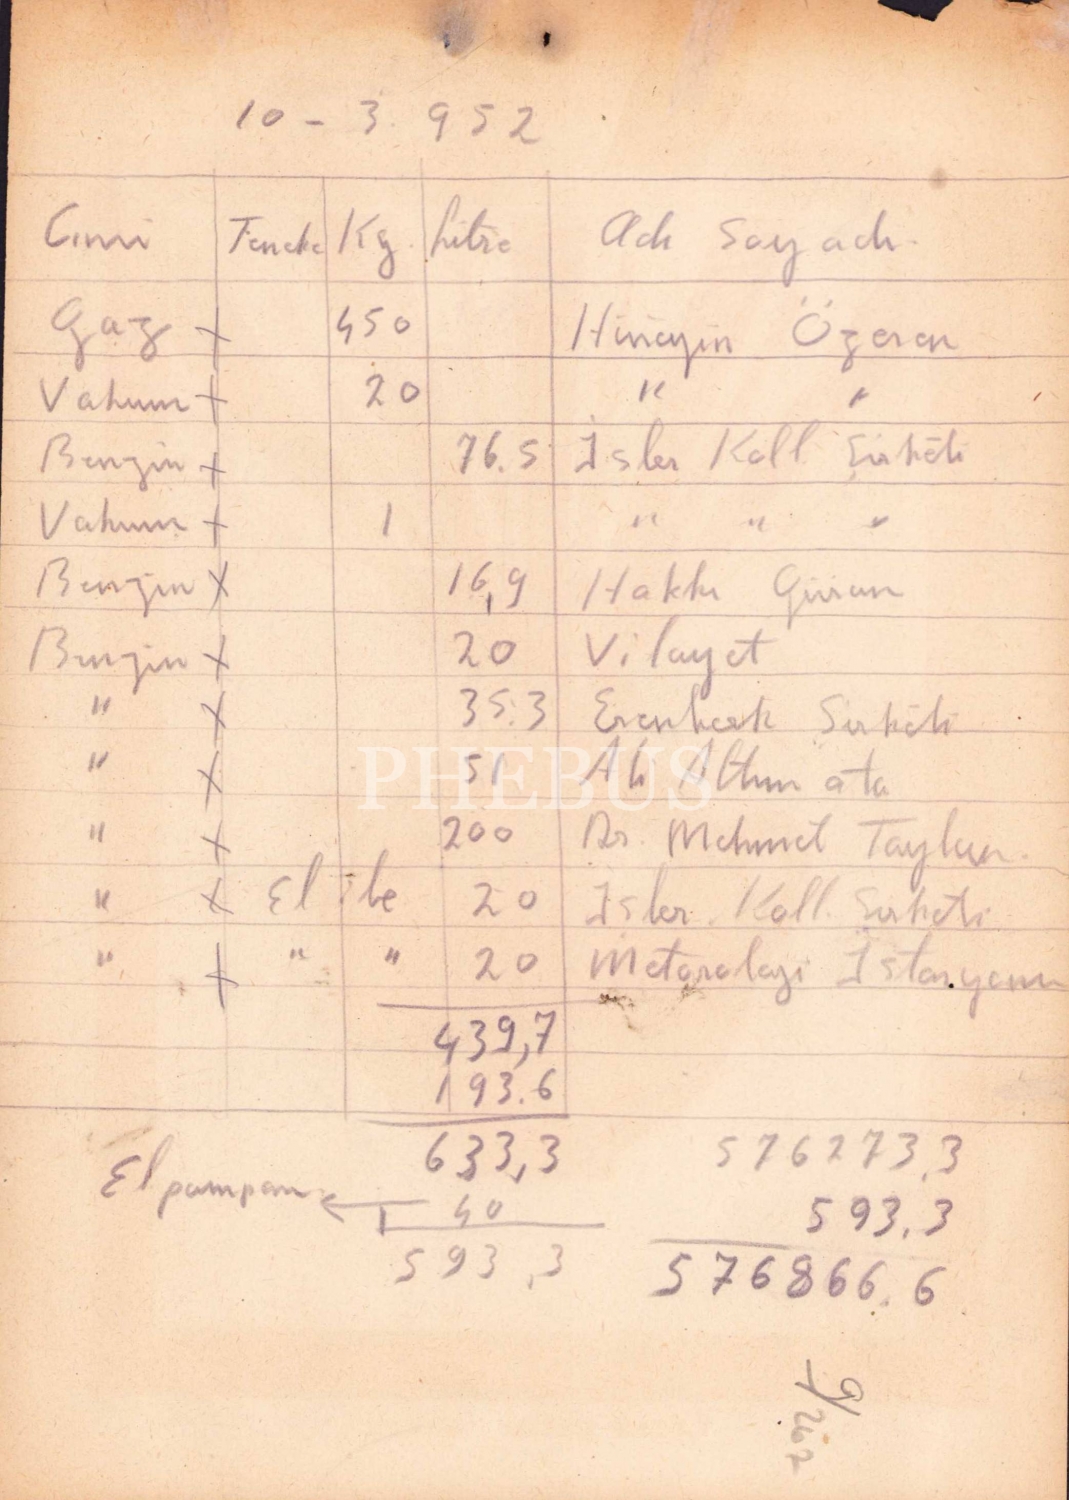 10 - 3. 952
Cinsi Teneke Kg. Litre Adı Soy adı.
Gaz + 450 Hüseyin Özeren
Vakum + 20 " "
Benzin + 76.5 İsler Koll. Şirketi
Vakum + 1 " " "
Benzin x 16,9 Hakkı Güran
Benzin x 20 Vilayet
" x 35.3 Şirketi
" x 51 Ali Altun ata
" x 200 Dr. Mehmet
" x El ile 20 İsler. Koll. Şirketi
" + " " 20 Metoroloji İstasyonu
PHEBUS
439,7
193.6
633,3 576273,3
El pompası 40 593,3
593,3 576866.6